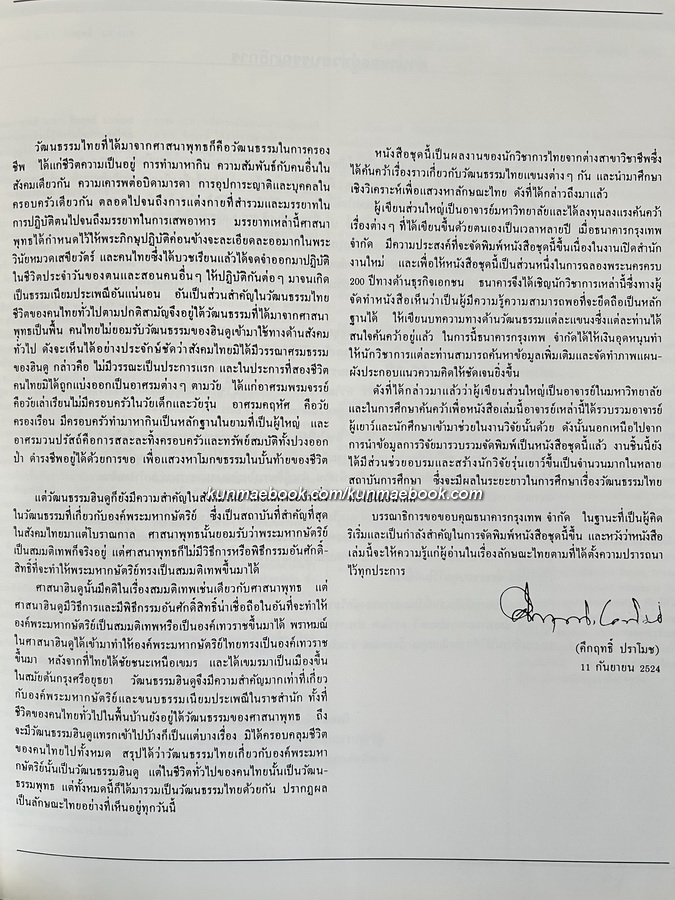 วัฒนธรรมไทยที่ได้มาจากศาสนาพุทธก็คือวัฒนธรรมในการครอง
ชีพ ได้แก่ชีวิตความเป็นอยู่ การทำมาหากิน ความสัมพันธ์กับคนอื่นใน
สังคมเดียวกัน ความเคารพต่อบิดามารดา การอุปการะญาติและบุคคลใน
ครอบครัวเดียวกัน ตลอดไปจนถึงการแต่งกายที่สำรวมและมรรยาทใน
การปฏิบัติตนไปจนถึงมรรยาทในการเสพอาหาร มรรยาทเหล่านี้ศาสนา
พุทธได้กำหนดไว้ให้พระภิกษุปฏิบัติค่อนข้างจะละเอียดละออมากในพระ
วินัยหมวดเสขิยวัตร์ และคนไทยซึ่งได้บวชเรียนแล้วได้จดจำออกมาปฏิบัติ
ในชีวิตประจำวันของตนและสอนคนอื่นๆ ให้ปฏิบัติกันต่อๆ มาจนเกิด
เป็นธรรมเนียมประเพณีอันแน่นอน อันเป็นส่วนสำคัญในวัฒนธรรมไทย
ชีวิตของคนไทยทั่วไปตามปกติสามัญจึงอยู่ใต้วัฒนธรรมที่ได้มาจากศาสนา
พุทธเป็นพื้น คนไทยไม่ยอมรับวัฒนธรรมของฮินดูเข้ามาใช้ทางด้านสังคม
ทั่วไป ดังจะเห็นได้อย่างประจักษ์ชัดว่าสังคมไทยมิได้มีวรรณาศรมธรรม
ของฮินดู กล่าวคือ ไม่มีวรรณะเป็นประการแรก และในประการที่สองชีวิต
คนไทยมิได้ถูกแบ่งออกเป็นอาศรมต่างๆ ตามวัย ได้แก่อาศรมพรมจรรย์
คือวัยเล่าเรียนไม่มีครอบครัวในวัยเด็กและวัยรุ่น อาศรมคฤหัศ คือวัย
ครองเรือน มีครอบครัวทำมาหากินเป็นหลักฐานในยามที่เป็นผู้ใหญ่ และ
อาศรมวานปรัสถ์คือการสละละทิ้งครอบครัวและทรัพย์สมบัติทั้งปวงออก
ป่า ดำรงชีพอยู่ได้ด้วยการขอ เพื่อแสวงหาโมกขธรรมในบั้นท้ายของชีวิต
แต่วัฒนธรรมฮินดูก็ยังมีความสำคัญใน
ในวัฒนธรรมที่เกี่ยวกับองค์พระมหากษัตริย์ ซึ่งเป็นสถาบันที่สำคัญที่สุด
ในสังคมไทยมาแต่โบราณกาล ศาสนาพุทธนั้นยอมรับว่าพระมหากษัตริย์
เป็นสมมติเทพก็จริงอยู่ แต่ศาสนาพุทธก็ไม่มีวิธีการหรือพิธีกรรมอันศักดิ์-
สิทธิ์ที่จะทำให้พระมหากษัตริย์ทรงเป็นสมมติเทพขึ้นมาได้
ศาสนาฮินดูนั้นมีคติในเรื่องสมมติเทพเช่นเดียวกับศาสนาพุทธ แต่
ศาสนาฮินดูมีวิธีการและมีพิธีกรรมอันศักดิ์สิทธิ์น่าเชื่อถือในอันที่จะทำให้
องค์พระมหากษัตริย์เป็นสมมติเทพหรือเป็นองค์เทวราชขึ้นมาได้ พราหมณ์
ในศาสนาฮินดูได้เข้ามาทำให้องค์พระมหากษัตริย์ไทยทรงเป็นองค์เทวราช
ขึ้นมา หลังจากที่ไทยได้ชัยชนะเหนือเขมร และได้เขมรมาเป็นเมืองขึ้น
ในสมัยต้นกรุงศรีอยุธยา วัฒนธรรมฮินดูจึงมีความสำคัญมากเท่าที่เกี่ยว
กับองค์พระมหากษัตริย์และขนบธรรมเนียมประเพณีในราชสำนัก ทั้งที่
ชีวิตของคนไทยทั่วไปในพื้นบ้านยังอยู่ใต้วัฒนธรรมของศาสนาพุทธ ถึง
จะมีวัฒนธรรมฮินดูแทรกเข้าไปบ้างก็เป็นแต่บางเรื่อง มิได้ครอบคลุมชีวิต
ของคนไทยไปทั้งหมด สรุปได้ว่าวัฒนธรรมไทยเกี่ยวกับองค์พระมหา
กษัตริย์นั้นเป็นวัฒนธรรมฮินดู แต่ในชีวิตทั่วไปของคนไทยนั้นเป็นวัฒน-
ธรรมพุทธ แต่ทั้งหมดนี้ก็ได้มารวมเป็นวัฒนธรรมไทยด้วยกัน ปรากฏผล
เป็นลักษณะไทยอย่างที่เห็นอยู่ทุกวันนี้
หนังสือชุดนี้เป็นผลงานของนักวิชาการไทยจากต่างสาขาวิชาชีพซึ่ง
ได้ค้นคว้าเรื่องราวเกี่ยวกับวัฒนธรรมไทยแขนงต่างๆ กัน และนำมาศึกษา
เชิงวิเคราะห์เพื่อแสวงหาลักษณะไทย ดังที่ได้กล่าวถึงมาแล้ว
ผู้เขียนส่วนใหญ่เป็นอาจารย์มหาวิทยาลัยและได้ลงทุนลงแรงค้นคว้า
เรื่องต่างๆ ที่ได้เขียนขึ้นด้วยตนเองเป็นเวลาหลายปี เมื่อธนาคารกรุงเทพ
จำกัด มีความประสงค์ที่จะจัดพิมพ์หนังสือชุดนี้ขึ้นเนื่องในงานเปิดสำนัก
งานใหม่ และเพื่อให้หนังสือชุดนี้เป็นส่วนหนึ่งในการฉลองพระนครครบ
200 ปีทางด้านธุรกิจเอกชน ธนาคารจึงได้เชิญนักวิชาการเหล่านี้ซึ่งทางผู้
จัดทำหนังสือเห็นว่าเป็นผู้มีความรู้ความสามารถพอที่จะยึดถือเป็นหลัก
ฐานได้ ให้เขียนบทความทางด้านวัฒนธรรมแต่ละแขนงซึ่งแต่ละท่านได้
สนใจค้นคว้าอยู่แล้ว ในการนี้ธนาคารกรุงเทพ จำกัดได้ให้เงินอุดหนุนทำ
ให้นักวิชาการแต่ละท่านสามารถค้นหาข้อมูลเพิ่มเติมและจัดทำภาพแผน-
ผังประกอบแนวความคิดให้ชัดเจนยิ่งขึ้น
ดังที่ได้กล่าวมาแล้วว่าผู้เขียนส่วนใหญ่เป็นอาจารย์ในมหาวิทยาลัย
และในการศึกษาค้นคว้าเพื่อหนังสือเล่มนี้อาจารย์เหล่านี้ได้รวบรวมอาจารย์
ผู้เยาว์และนักศึกษาเข้ามาช่วยในงานวิจัยนั้นด้วย ดังนั้นนอกเหนือไปจาก
การนำข้อมูลการวิจัยมารวบรวมจัดพิมพ์เป็นหนังสือชุดนี้แล้ว งานชิ้นนี้ยัง
ได้มีส่วนช่วยอบรมและสร้างนักวิจัยรุ่นเยาว์ขึ้นเป็นจำนวนมากในหลาย
สถาบันการศึกษา ซึ่งจะมีผลในระยะยาวในการศึกษาเรื่องวัฒนธรรมไทย
kunmaebook.com/kunmaebook.com
บรรณาธิการขอขอบคุณธนาคารกรุงเทพ จำกัด ในฐานะที่เป็นผู้คิด
ริเริ่มและเป็นกำลังสำคัญในการจัดพิมพ์หนังสือชุดนี้ขึ้น และหวังว่าหนังสือ
เล่มนี้จะให้ความรู้แก่ผู้อ่านในเรื่องลักษณะไทยตามที่ได้ตั้งความปรารถนา
ไว้ทุกประการ
(คึกฤทธิ์ ปราโมช)
11 กันยายน 2524